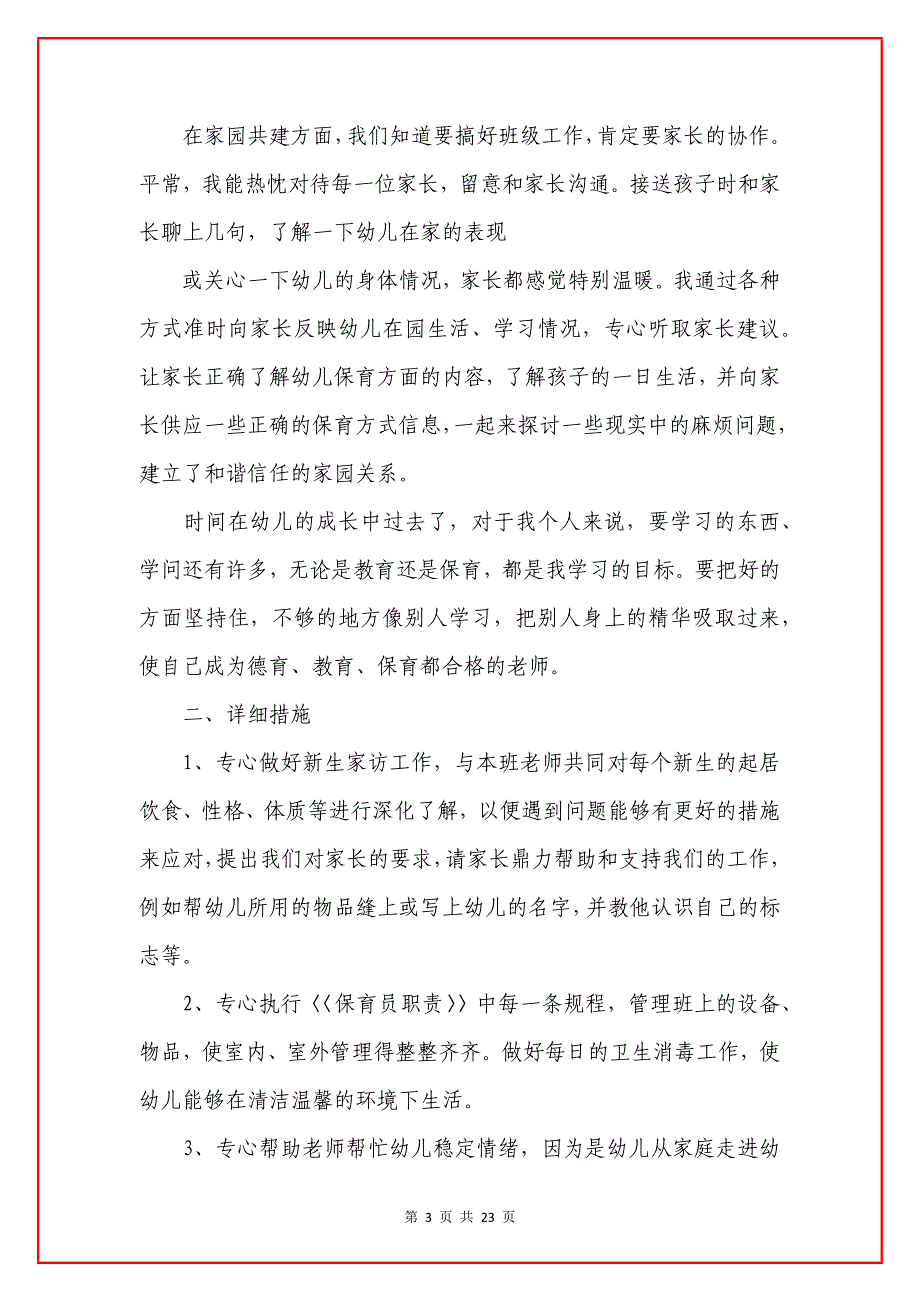 在家园共建方面，我们知道要搞好班级工作，肯定要家长的协作。
平常，我能热忱对待每一位家长，留意和家长沟通。接送孩子时和家
长聊上几句，了解一下幼儿在家的表现
或关心一下幼儿的身体情况，家长都感觉特别温暖。我通过各种
方式准时向家长反映幼儿在园生活、学习情况，专心听取家长建议。
让家长正确了解幼儿保育方面的内容，了解孩子的一日生活，并向家
长供应一些正确的保育方式信息，一起来探讨一些现实中的麻烦问题，
建立了和谐信任的家园关系。
时间在幼儿的成长中过去了，对于我个人来说，要学习的东西、
学问还有许多，无论是教育还是保育，都是我学习的目标。要把好的
方面坚持住，不够的地方像别人学习，把别人身上的精华吸取过来，
使自己成为德育、教育、保育都合格的老师。
二、详细措施
1、专心做好新生家访工作，与本班老师共同对每个新生的起居
饮食、性格、体质等进行深化了解，以便遇到问题能够有更好的措施
来应对，提出我们对家长的要求，请家长鼎力帮助和支持我们的工作，
例如帮幼儿所用的物品缝上或写上幼儿的名字，并教他认识自己的标
志等。
2、专心执行〈〈保育员职责〉〉中每一条规程，管理班上的设备、
物品，使室内、室外管理得整整齐齐。做好每日的卫生消毒工作，使
幼儿能够在清洁温馨的环境下生活。
3、专心帮助老师帮忙幼儿稳定情绪，因为是幼儿从家庭走进幼
第 3 页 共 23 页